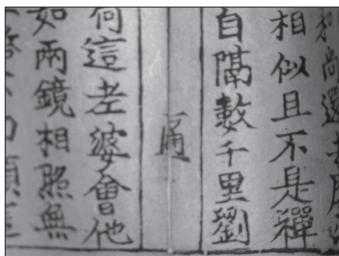 和尚還
相似且不是禪
自隔數千里劉
何這老婆會他
如兩鏡相照無